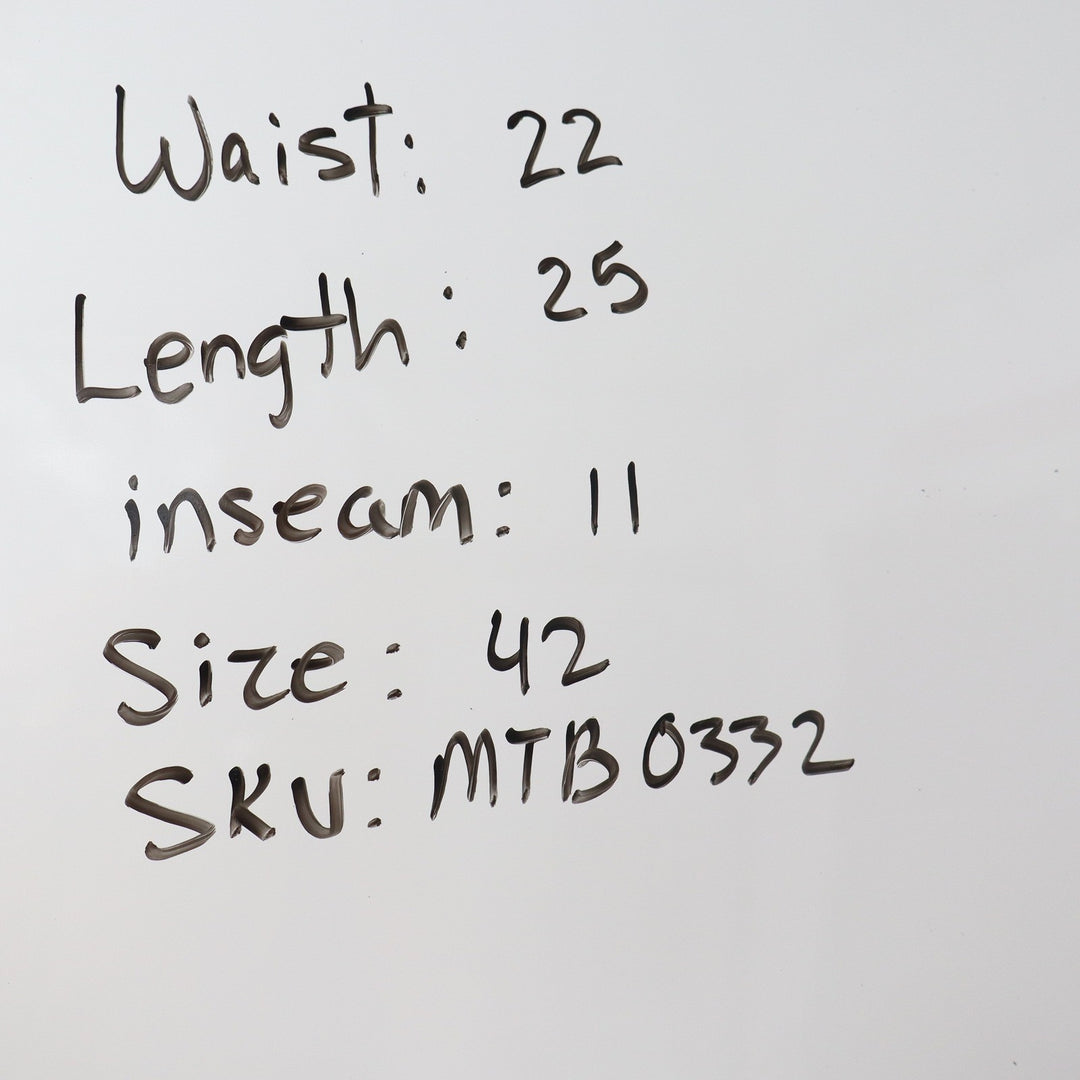 Waist: 22
Length: 25
inseam: 11
Size: 42
SKU: MTB0332